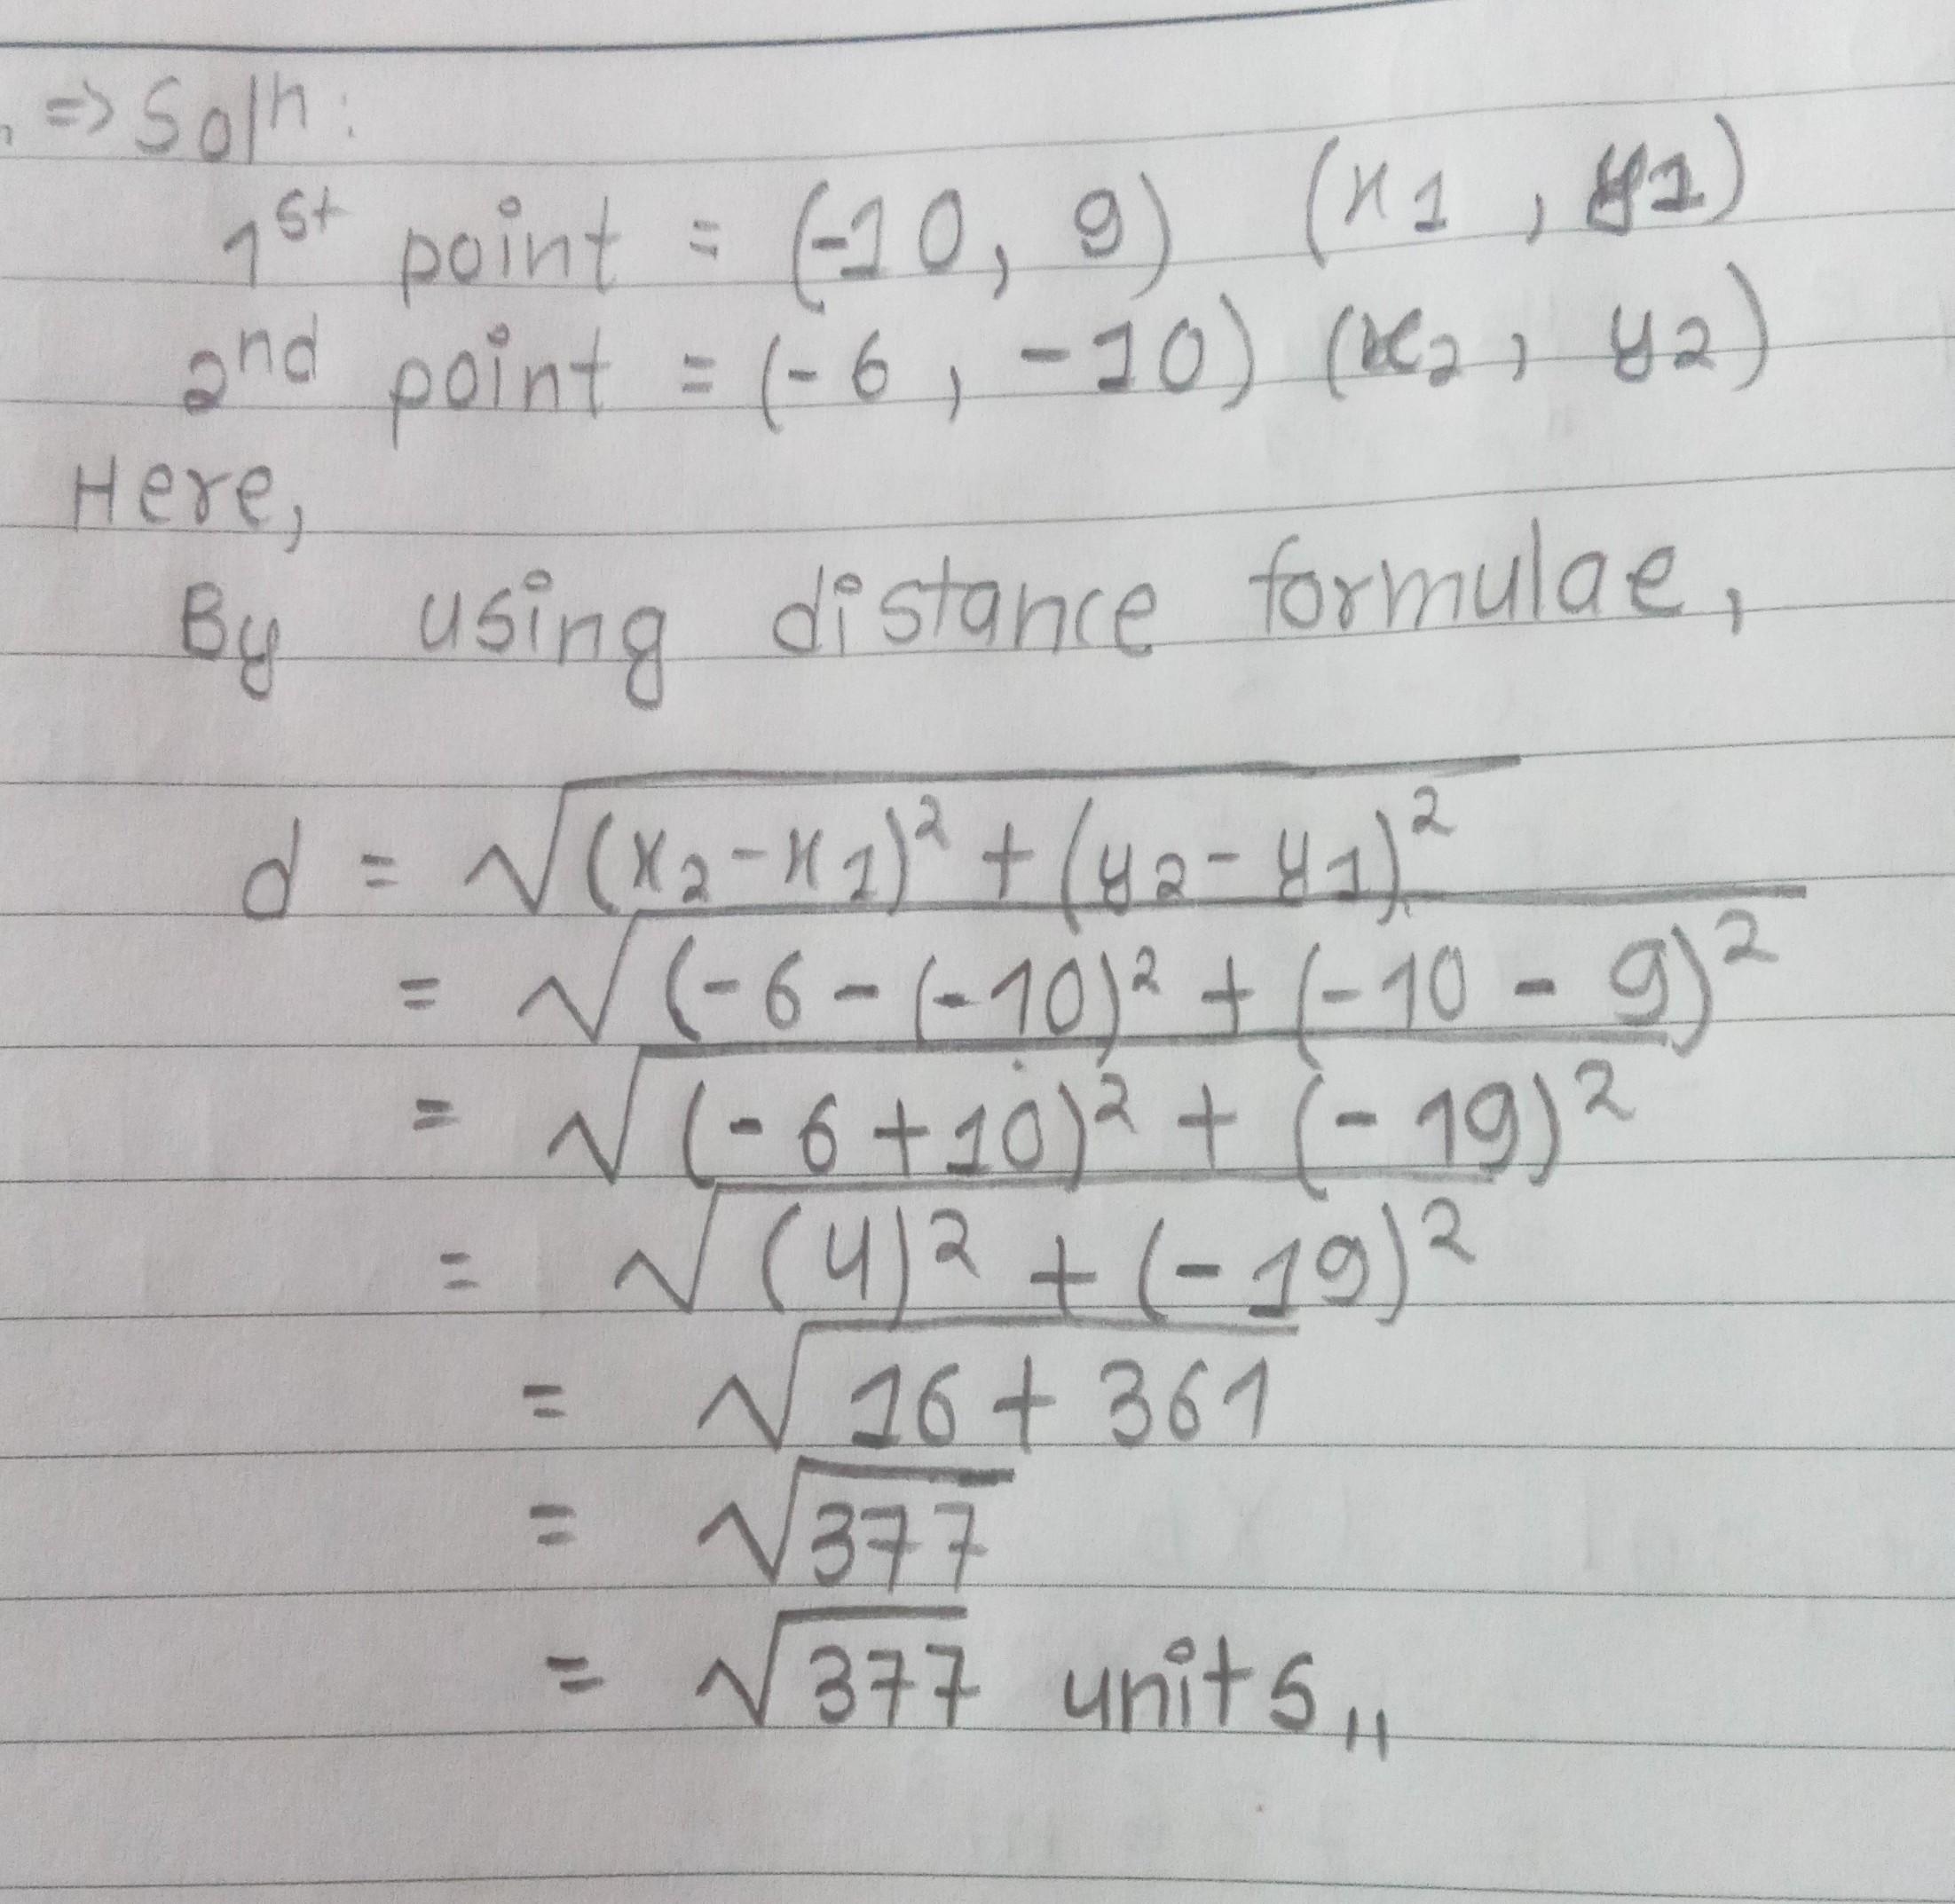 => Solⁿ:
1ˢᵗ point = (-10, 9) (x1, y1)
2ⁿᵈ point = (-6, -10) (x2, y2)
Here,
By using distance formulae,
d = √(x2-x1)² + (y2-y1)²
= √(-6-(-10)² + (-10-9)²
= √(-6+10)² + (-19)²
= √(4)² + (-19)²
= √16 + 361
= √377
= √377 units,,